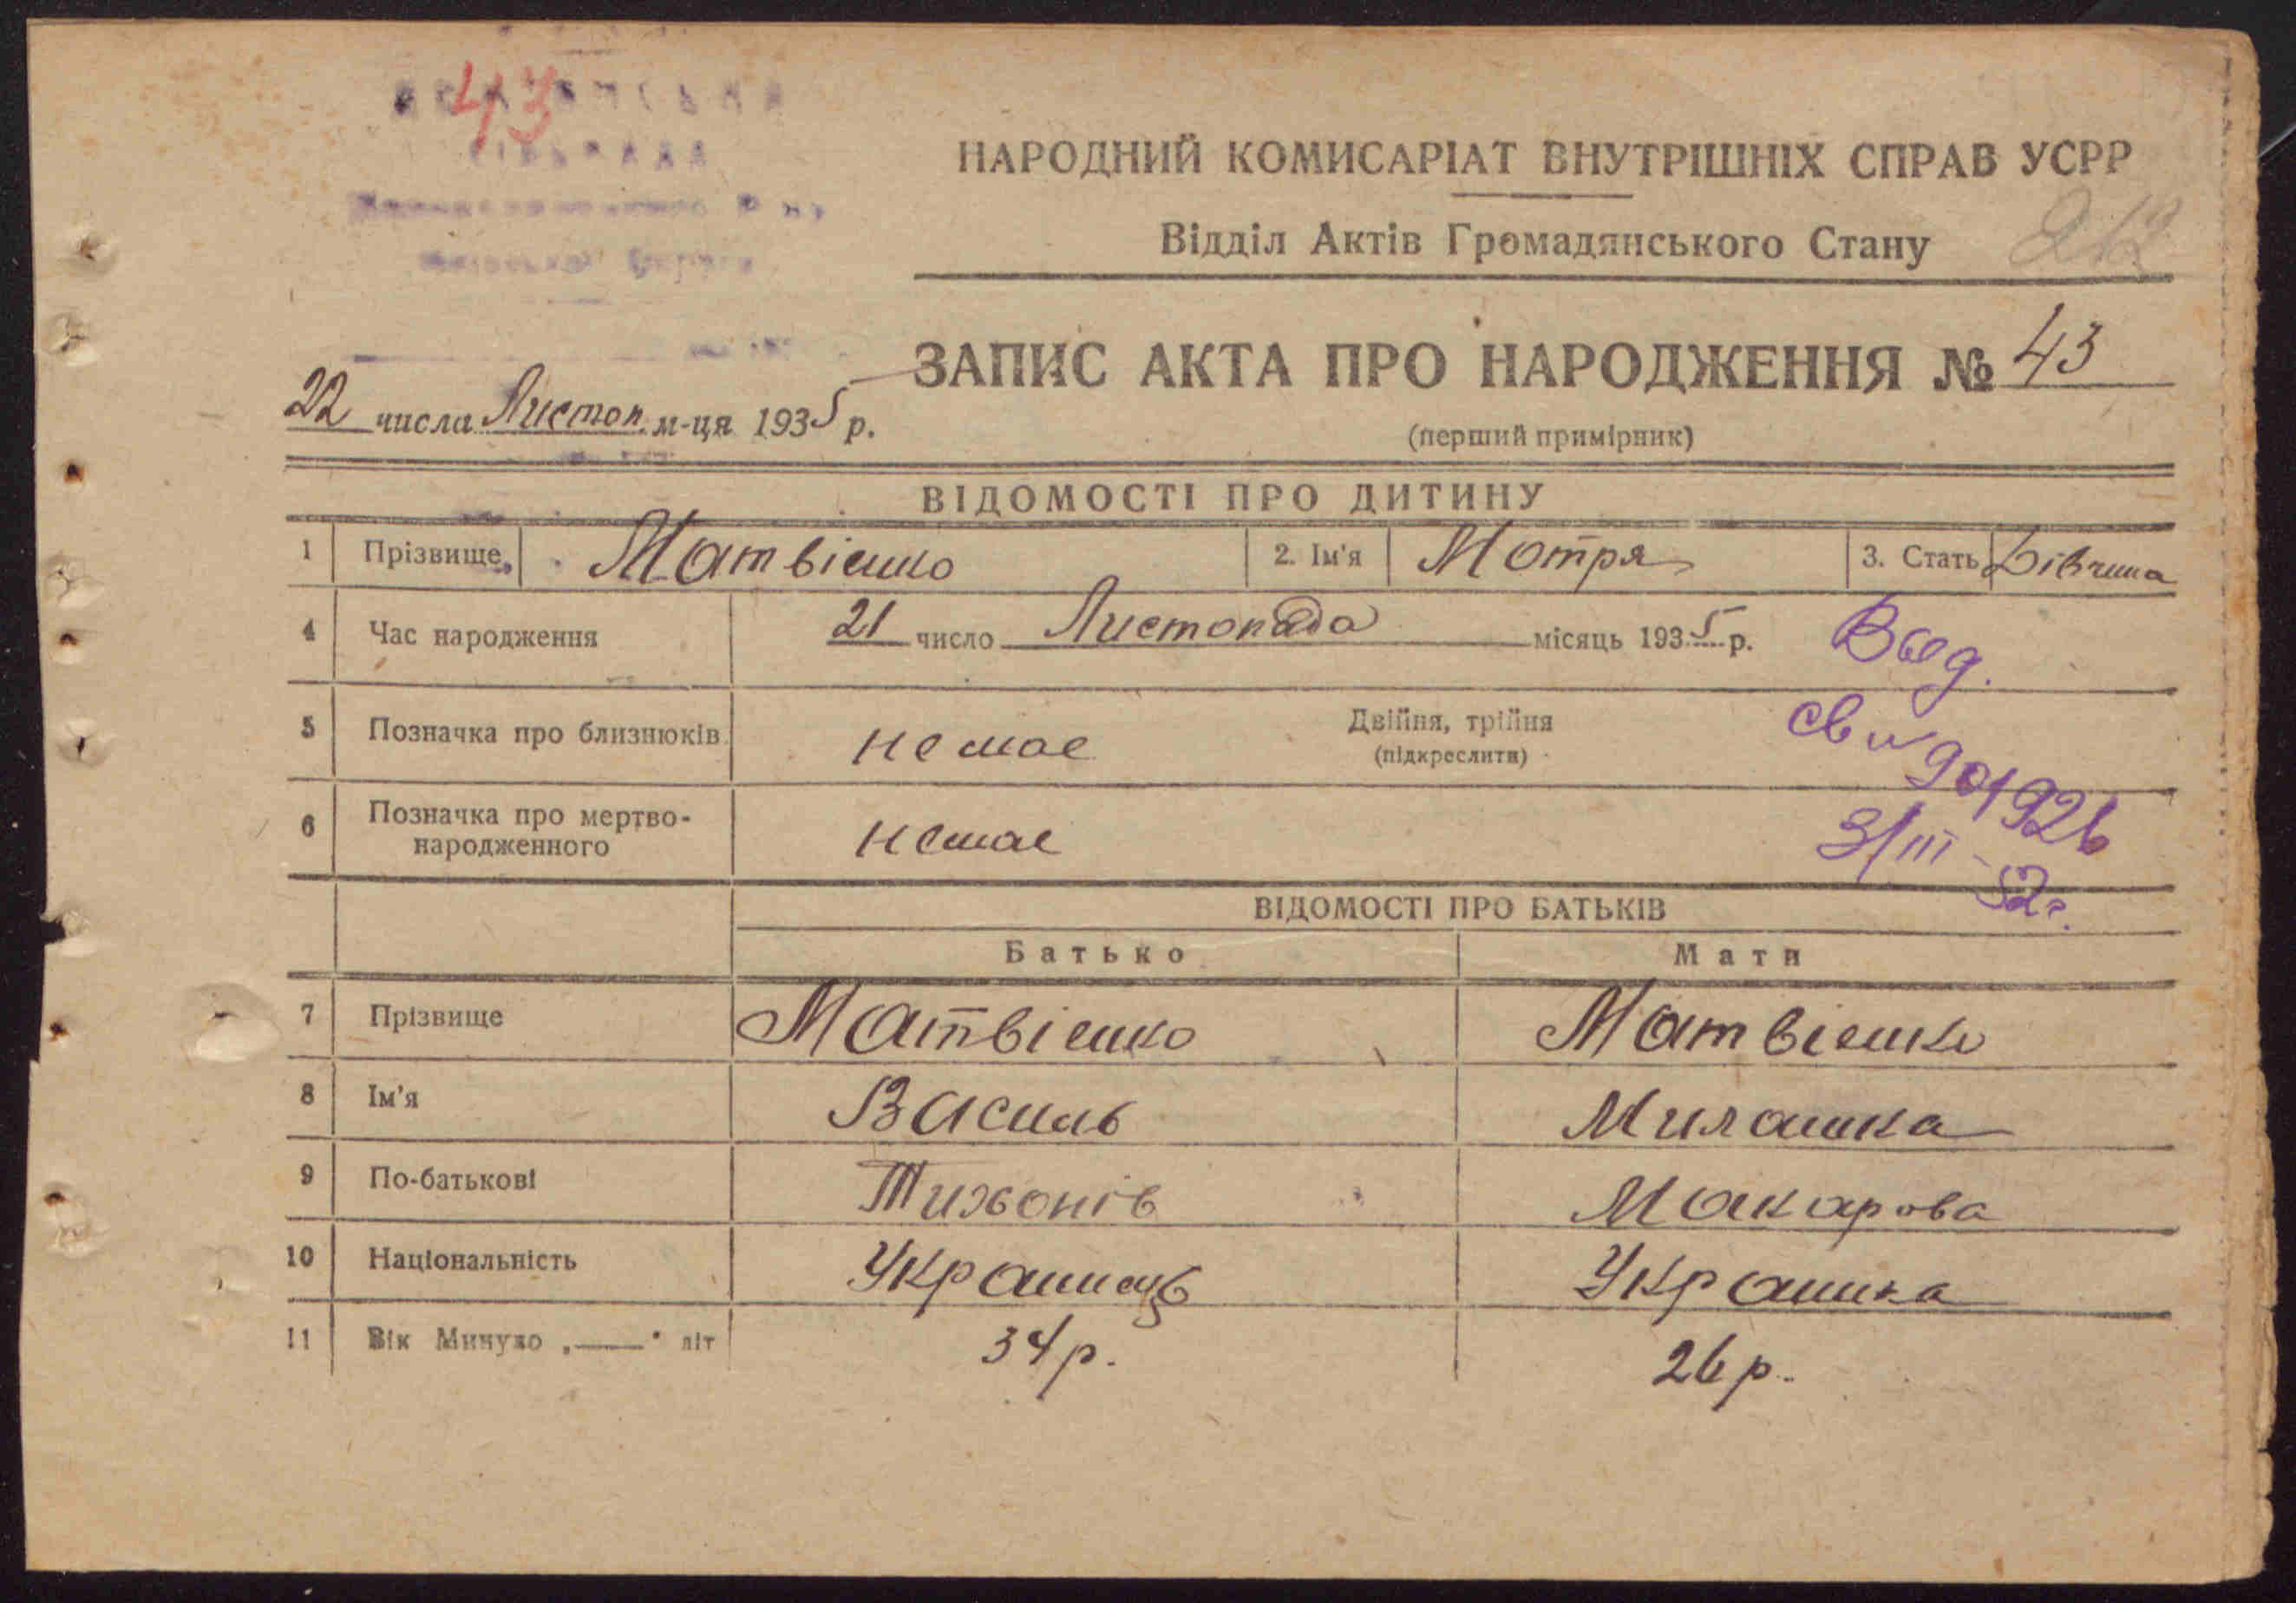 43
СІЛЬРАДА
НАРОДНИЙ КОМИСАРІАТ ВНУТРІШНІХ СПРАВ УСРР
Відділ Актів Громадянського Стану
212
ЗАПИС АКТА ПРО НАРОДЖЕННЯ № 43
22 числа Листоп. м-ця 1935 р.
(перший примірник)
ВІДОМОСТІ ПРО ДИТИНУ
1 Прізвище Матвієнко 2. Ім'я Мотря 3. Стать Дівчина
4 Час народження 21 число Листопада місяць 1935 р.
Выд.
5 Позначка про близнюків немає Двійня, трійня
(підкреслити)
св и 901926
6 Позначка про мертво-
народженного немає
3/III-52г.
ВІДОМОСТІ ПРО БАТЬКІВ
Батько Мати
7 Прізвище Матвієнко Матвієнко
8 Ім'я Василь Миланка
9 По-батькові Тихонів Макарова
10 Національність Украинець Украинка
11 Вік Минуло „——" літ 34 р. 26 р.